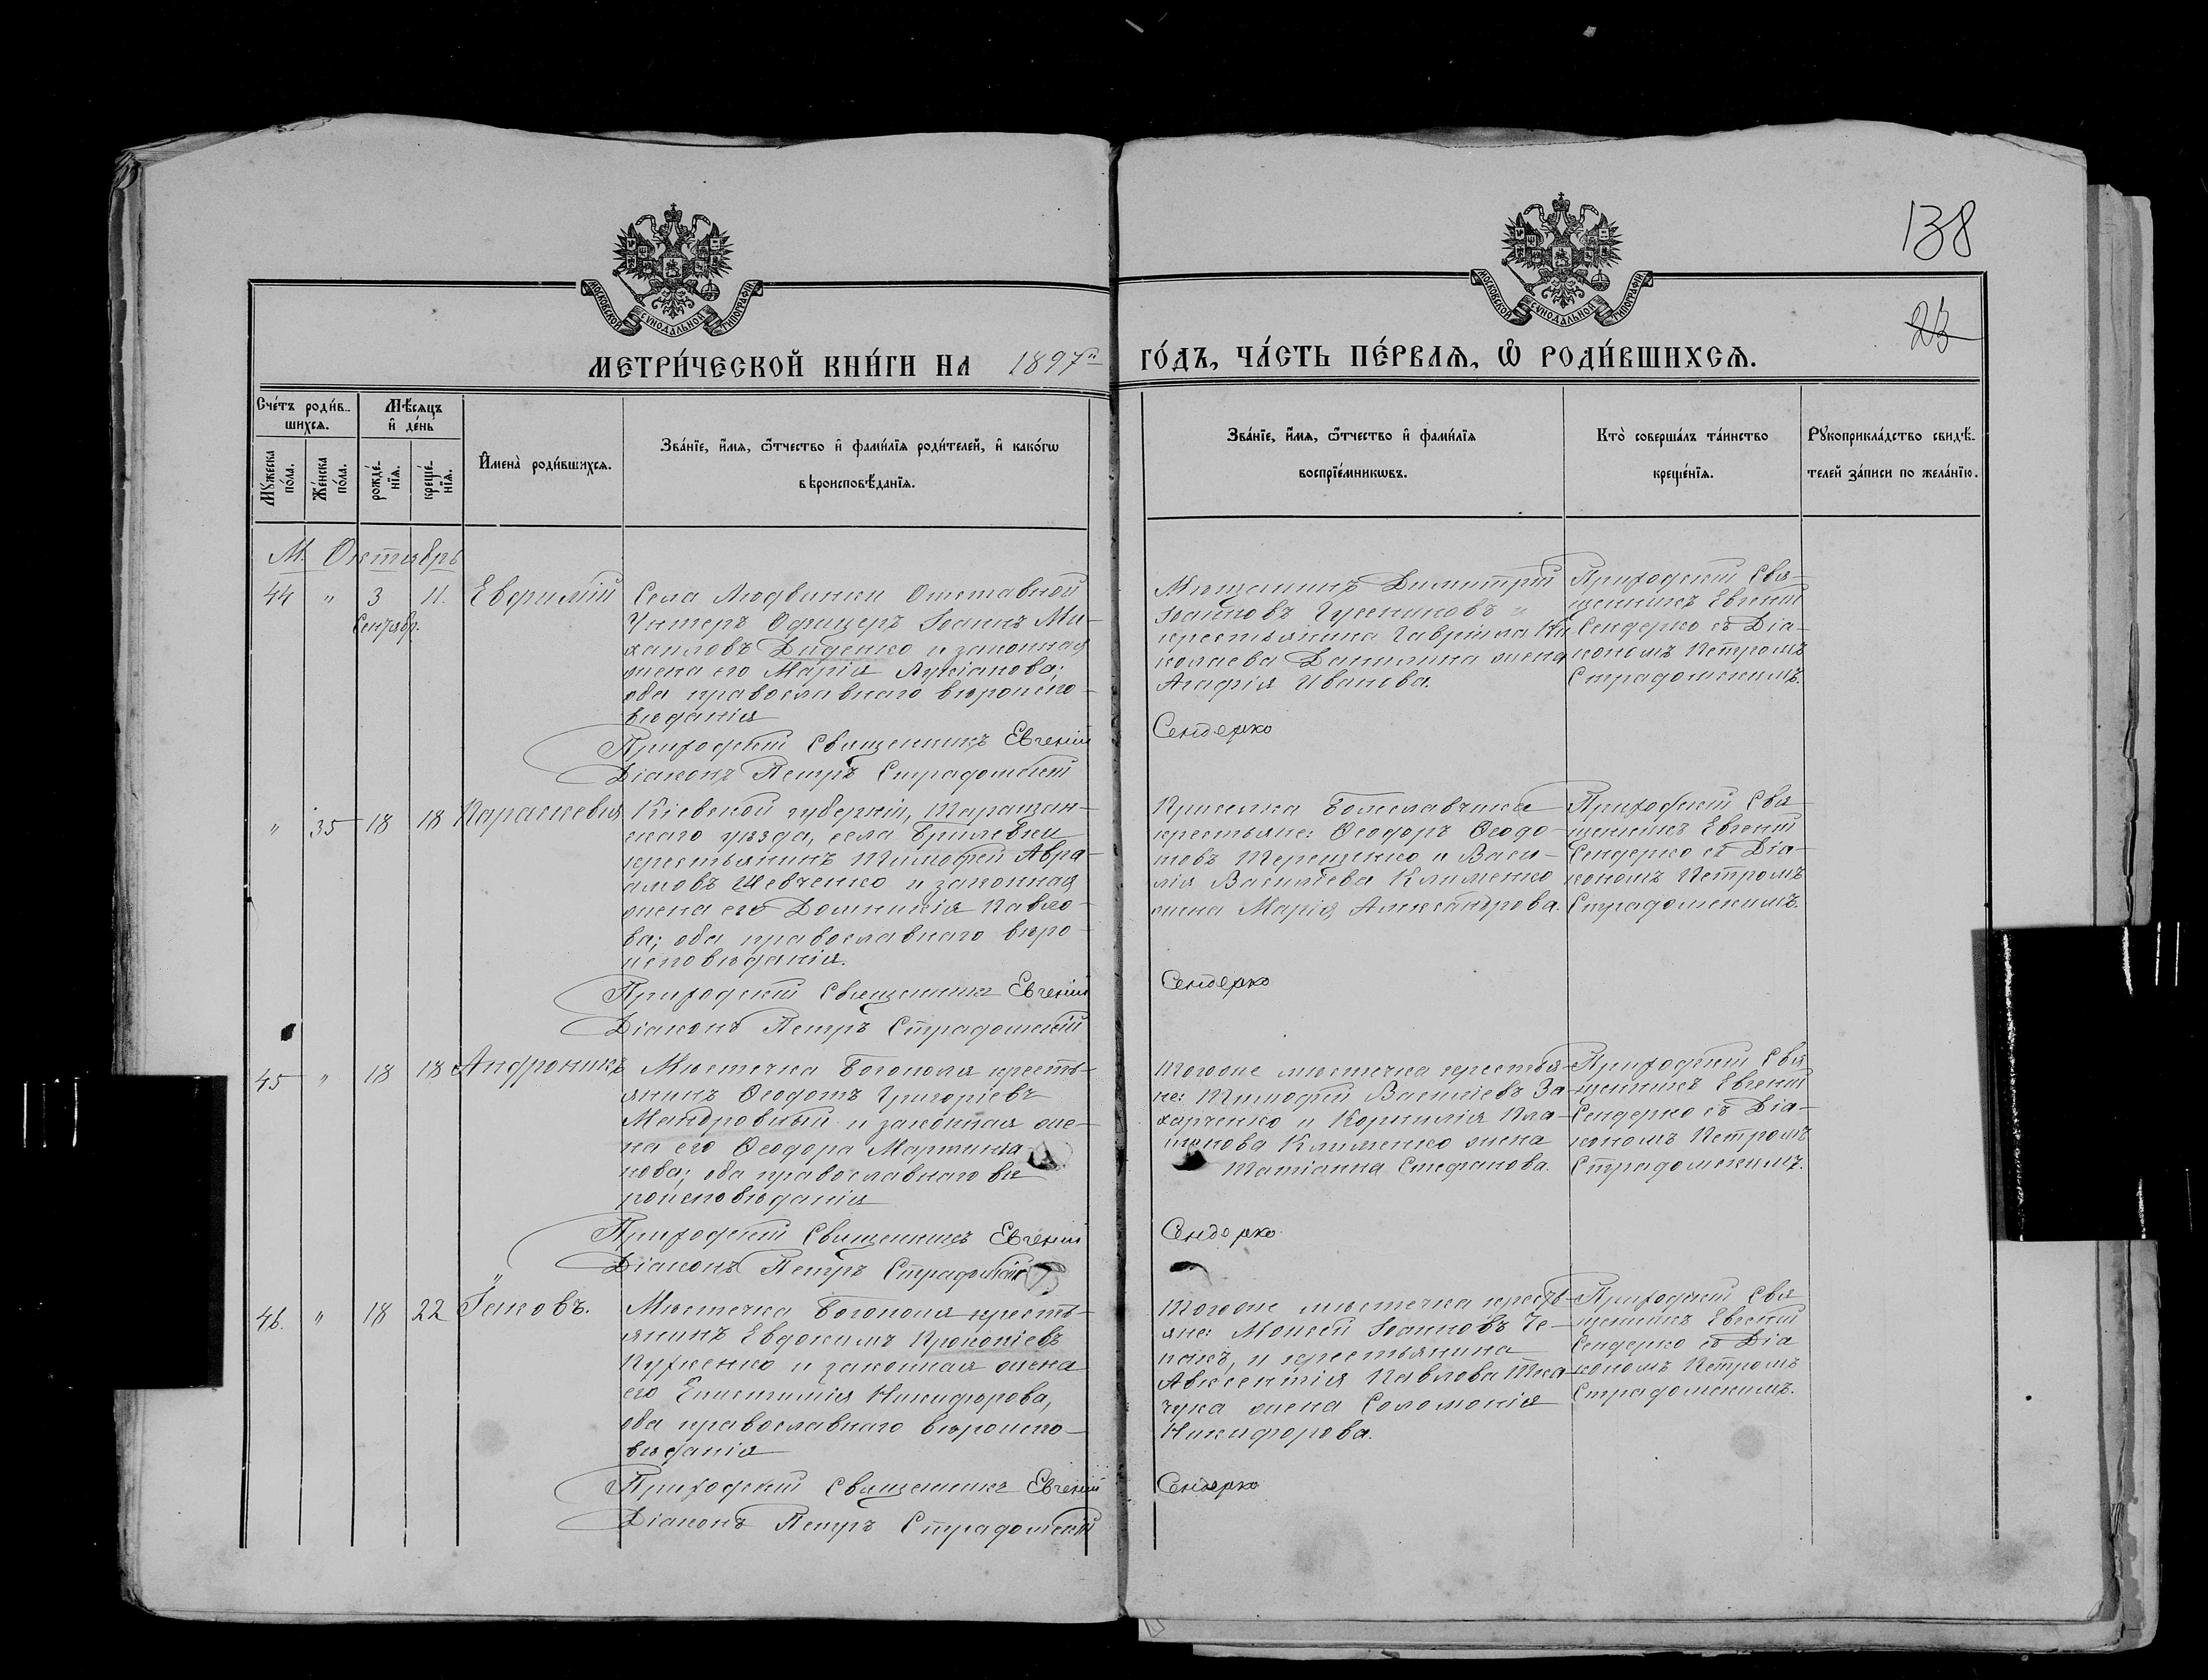 138
23
МОСКОВСКОЙ СѴНОДАЛЬНОЙ ТИПОГРАФІИ
МОСКОВСКОЙ СѴНОДАЛЬНОЙ ТИПОГРАФІИ
МЕТРИ́ЧЕСКОЙ КНИ́ГИ НА 1897й ГО́ДЪ, ЧА́СТЬ ПЕ́РВАѦ, Ѽ РОДИ́ВШИХСѦ.
Сче́тъ роди́в-
шихсѧ.
Мѣ́сѧцъ
и҆ де́нь
Мꙋ́жеска
по́ла.
Же́нска
по́ла.
рожде́-
нїѧ.
креще́-
нїѧ.
И҆мена̀ роди́вшихсѧ.
Зва́нїе, и҆́мѧ, ѻ҆́тчество и҆ фами́лїѧ роди́телей, и҆ како́гѡ
вѣроисповѣ́данїѧ.
Зва́нїе, и҆́мѧ, ѻ҆́тчество и҆ фами́лїѧ
воспрїе́мникѡвъ.
Кто̀ соверша́лъ та́инство
креще́нїѧ.
Рꙋкоприкла́дство свидѣ́-
телей за́писи по жела́нїю.
М. Октябрь
44 " 3 11. Евфимій
Сентябр.
Села Людвинки Отставной
Унтеръ Офицеръ Іоаннъ Ми-
хаиловъ Диденко и законная
жена его Марія Лукіанова;
оба православнаго вѣроиспо-
вѣданія
Приходскій Священникъ Евгеній
Діаконъ Петръ Страдомскій
Мѣщанинъ Димитрій
Іоанновъ и
крестьянина Гавріила Ни
колаева Данилина жена
Агафія Иванова.
Сендерко
Приходскій Свя-
щенникъ Евгеній
Сендерко съ Діа-
кономъ Петромъ
Страдомскимъ.
" 35 18 18 Параскевія
Кіевской губерніи, Таращан-
скаго уѣзда, села Брилевки
крестьянинъ Тимофей Авра-
амовъ Шевченко и законная
жена его Домникія Павло-
ва; оба православнаго вѣро-
исповѣданія.
Приходскій Священникъ Евгеній
Діаконъ Петръ Страдомскій
Приселка Бомславчика
крестьяне: Ѳеодоръ Ѳеодо-
товъ Терещенко и Васи-
лія Василіева Клименко
жена Марія Александрова.
Сендерко
Приходскій Свя-
щенникъ Евгеній
Сендерко съ Діа-
кономъ Петромъ
Страдомскимъ.
45 " 18 18 Андроникъ
Мѣстечка Богополя кресть-
янинъ Ѳеодотъ Григоріевъ
Мандровный и законная же-
на его Ѳеодора Мартиніа
нова; оба православнаго вѣ
роисповѣданія
Приходскій Священникъ Евгеній
Діаконъ Петръ Страдомскій
Тогоже мѣстечка крестья-
не: Тимофей Василіевъ За-
харченко и Корнилія Пла-
тонова Клименко жена
Татіанна Стефанова.
Сендерко
Приходскій Свя
щенникъ Евгеній
Сендерко съ Діа-
кономъ Петромъ
Страдомскимъ.
46. " 18 22 Іаковъ.
Мѣстечка Богополя кресть-
янинъ Евдокимъ Прокопіевъ
Пуженко и законная жена
его Епистимія Никифорова,
оба православнаго вѣроиспо-
вѣданія
Приходскій Священникъ Евгеній
Діаконъ Петръ Страдомскій
Тогоже мѣстечка кресть-
яне: Моисей Іоанновъ Че-
пакъ, и крестьянина
Авксентія Павлова Тка-
чука жена Соломонія
Никифорова.
Сендерко
Приходскій Свя
щенникъ Евгеній
Сендерко съ Діа
кономъ Петромъ
Страдомскимъ.